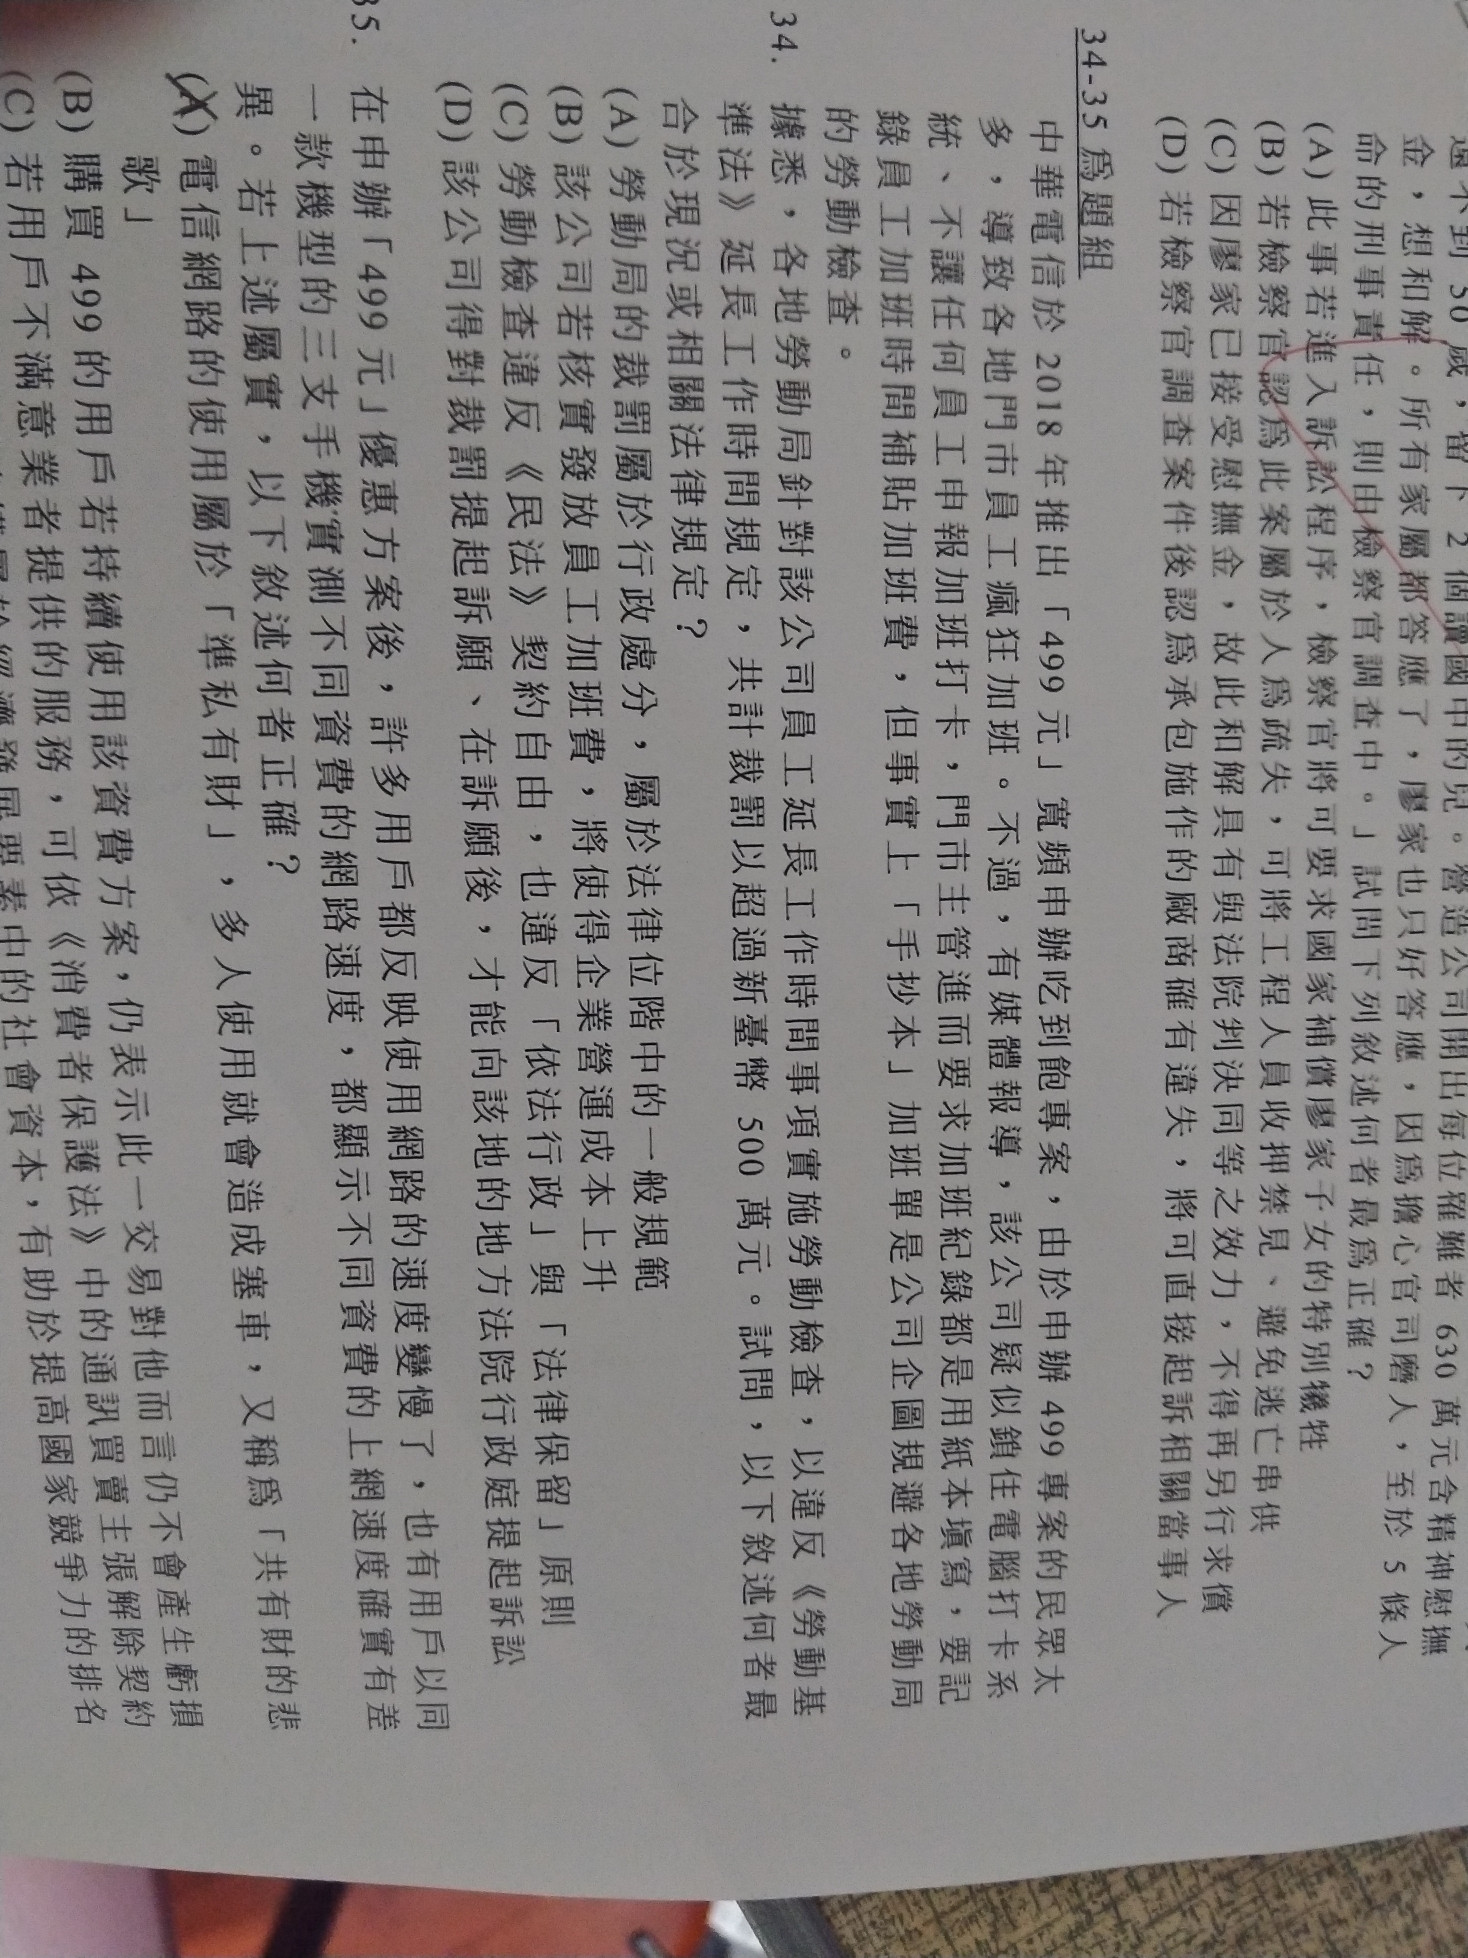 還不到 50 歲，留下 2 個讀國中的兒。營造公司開出每位罹難者 630 萬元含精神慰撫
金，想和解。所有家屬都答應了，廖家也只好答應，因為擔心官司磨人，至於 5 條人
命的刑事責任，則由檢察官調查中。」試問下列敘述何者最為正確？
(A) 此事若進入訴訟程序，檢察官將可要求國家補償廖家子女的特別犧牲
(B) 若檢察官認為此案屬於人為疏失，可將工程人員收押禁見、避免逃亡串供
(C) 因廖家已接受慰撫金，故此和解具有與法院判決同等之效力，不得再另行求償
(D) 若檢察官調查案件後認為承包施作的廠商確有違失，將可直接起訴相關當事人
34-35 為題組
中華電信於 2018 年推出「499 元」寬頻申辦吃到飽專案，由於申辦 499 專案的民眾太
多，導致各地門市員工瘋狂加班。不過，有媒體報導，該公司疑似鎖住電腦打卡系
統、不讓任何員工申報加班打卡，門市主管進而要求加班紀錄都是用紙本填寫，要記
錄員工加班時間補貼加班費，但事實上「手抄本」加班單是公司企圖規避各地勞動局
的勞動檢查。
34. 據悉，各地勞動局針對該公司員工延長工作時間事項實施勞動檢查，以違反《勞動基
準法》延長工作時間規定，共計裁罰以超過新臺幣 500 萬元。試問，以下敘述何者最
合於現況或相關法律規定？
(A) 勞動局的裁罰屬於行政處分，屬於法律位階中的一般規範
(B) 該公司若核實發放員工加班費，將使得企業營運成本上升
(C) 勞動檢查違反《民法》契約自由，也違反「依法行政」與「法律保留」原則
(D) 該公司得對裁罰提起訴願、在訴願後，才能向該地的地方法院行政庭提起訴訟
35. 在申辦「499 元」優惠方案後，許多用戶都反映使用網路的速度變慢了，也有用戶以同
一款機型的三支手機實測不同資費的網路速度，都顯示不同資費的上網速度確實有差
異。若上述屬實，以下敘述何者正確？
(A) 電信網路的使用屬於「準私有財」，多人使用就會造成塞車，又稱為「共有財的悲
歌」
(B) 購買 499 的用戶若持續使用該資費方案，仍表示此一交易對他而言仍不會產生虧損
(C) 若用戶不滿意業者提供的服務，可依《消費者保護法》中的通訊買賣主張解除契約
經濟發展要素中的社會資本，有助於提高國家競爭力的排名